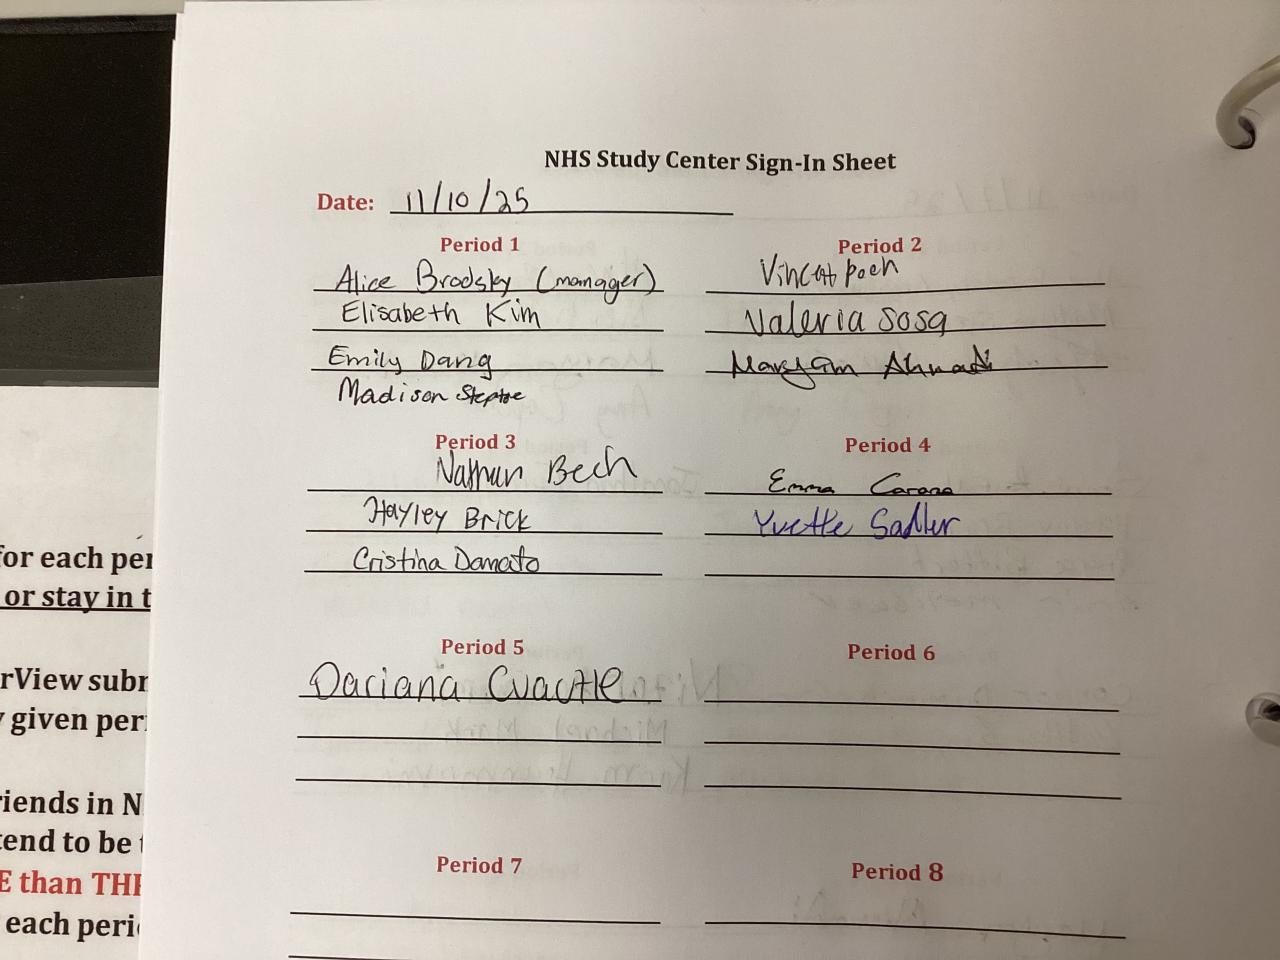 NHS Study Center Sign-In Sheet
Date: 11/10/25
Period 1
Alice Brodsky (manager)
Elisabeth Kim
Emily Dang
Madison Steptoe
Period 2
Vincent Poch
Valeria Sosa
Maryam Ahmadi
Period 3
Nathan Bech
Hayley Brick
Cristina Damato
Period 4
Emma Carona
Yvette Sadler
Period 5
Dariana Cuactle
Period 6
Period 7
Period 8
for each per
or stay in t
rView subr
given per
riends in N
tend to be
E than THE
each peri